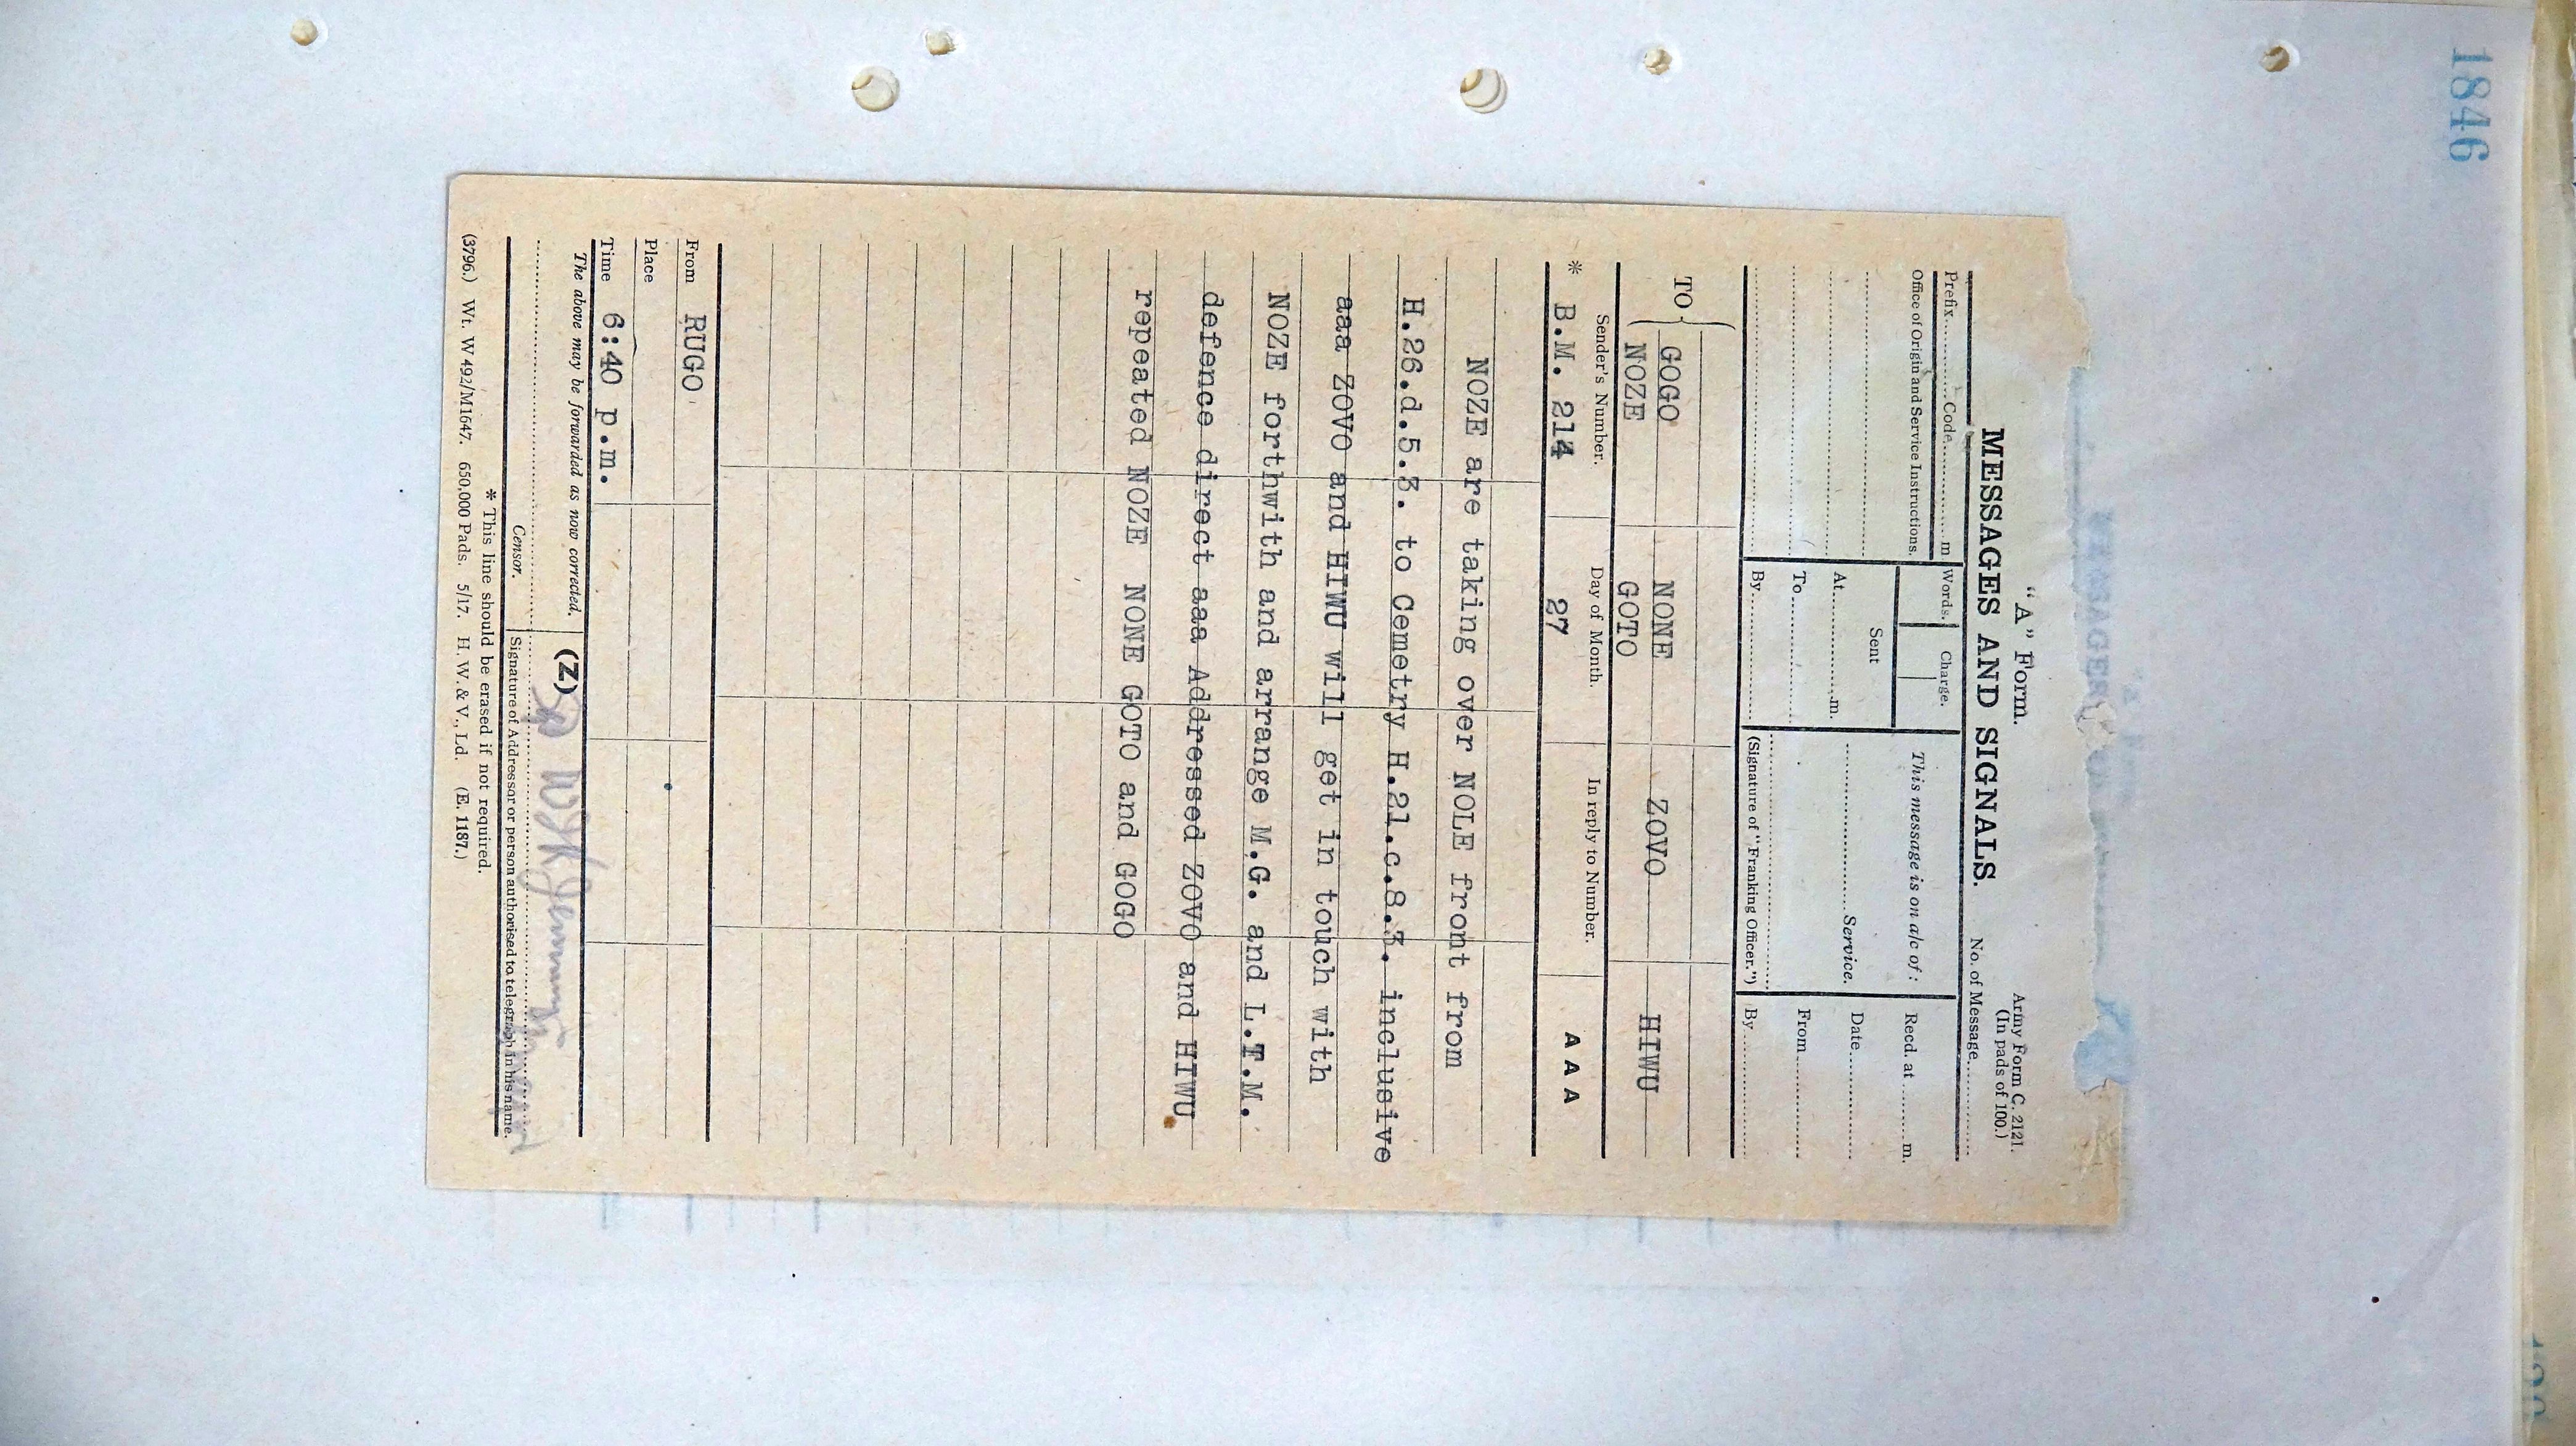 1846
"A" Form.
Army Form C. 2121.
(In pads of 100.)
MESSAGES AND SIGNALS.
No. of Message
Prefix Code m
Words.
Charge.
This message is on a/c of :
Recd. at m.
Office of Origin and Service Instructions.
Sent
At m.
Service.
Date
To
From
By
(Signature of "Franking Officer.")
By
TO { GOGO NONE ZOVO HIWU
NOZE GOTO
Sender's Number.
Day of Month.
In reply to Number.
* B.M. 214 27 A A A
NOZE are taking over NOLE front from
H.26.d.5.3. to Cemetry H.21.c.8.3. inclusive
aaa ZOVO and HIWU will get in touch with
NOZE forthwith and arrange M.G. and L.T.M.
defence direct aaa Addressed ZOVO and HIWU
repeated NOZE NONE GOTO and GOGO
From RUGO
Place
Time 6:40 p.m.
The above may be forwarded as now corrected. (Z)
Censor.
Signature of Addressor or person authorised to telegraph in his name.
* This line should be erased if not required.
(3796.) Wt. W 492/M1647. 650,000 Pads. 5/17. H. W. & V., Ld. (E. 1187.)